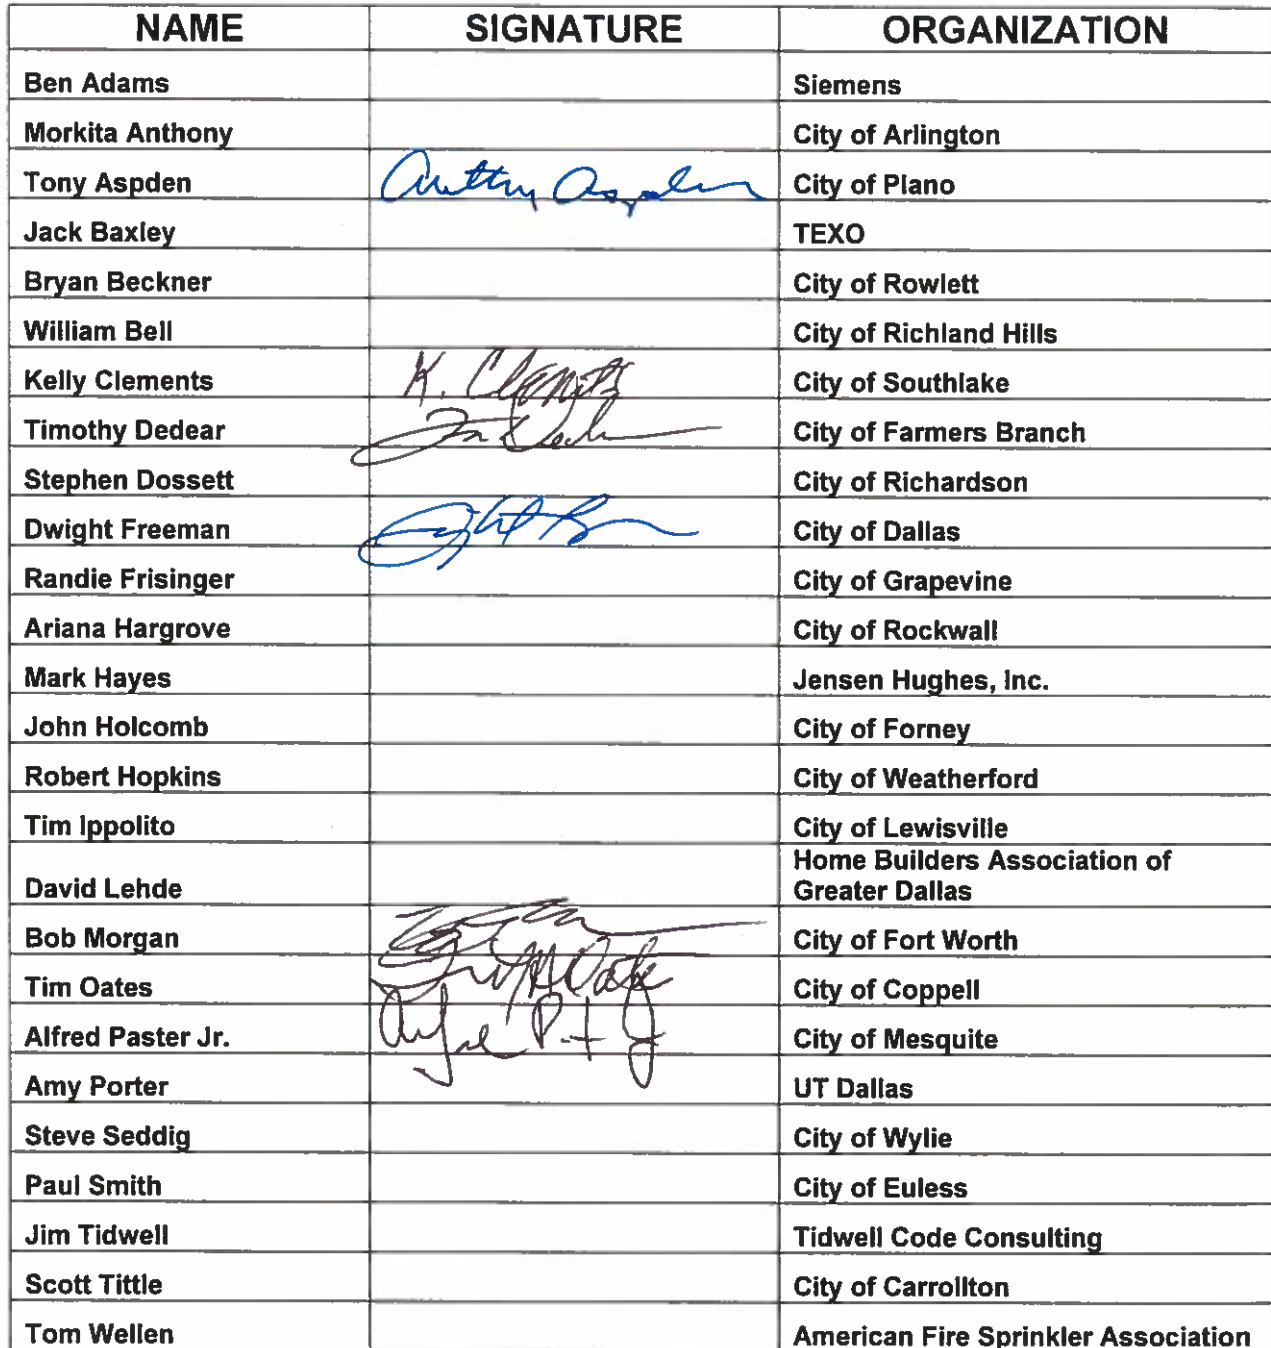 NAME SIGNATURE ORGANIZATION
Ben Adams Siemens
Morkita Anthony City of Arlington
Tony Aspden Anthony Aspden City of Plano
Jack Baxley TEXO
Bryan Beckner City of Rowlett
William Bell City of Richland Hills
Kelly Clements K. Clements City of Southlake
Timothy Dedear Tim Dedear City of Farmers Branch
Stephen Dossett City of Richardson
Dwight Freeman City of Dallas
Randie Frisinger City of Grapevine
Ariana Hargrove City of Rockwall
Mark Hayes Jensen Hughes, Inc.
John Holcomb City of Forney
Robert Hopkins City of Weatherford
Tim Ippolito City of Lewisville
Home Builders Association of
David Lehde Greater Dallas
Bob Morgan City of Fort Worth
Tim Oates City of Coppell
Alfred Paster Jr. City of Mesquite
Amy Porter UT Dallas
Steve Seddig City of Wylie
Paul Smith City of Euless
Jim Tidwell Tidwell Code Consulting
Scott Tittle City of Carrollton
Tom Wellen American Fire Sprinkler Association